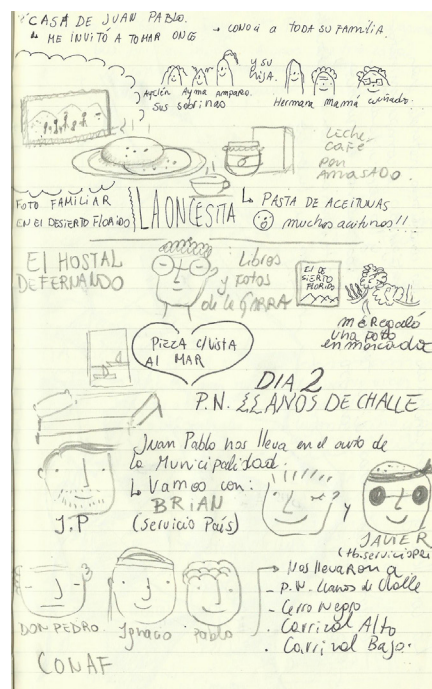 CASA DE JUAN PABLO.
↳ ME INVITÓ A TOMAR ONCE → CONOCÍ A TODA SU FAMILIA.
y su
hija.
Ayma Amparo.
sus sobrinas
Hermana mamá cuñado.
Leche
café
pan
amasado.
FOTO FAMILIAR
EN EL DESIERTO FLORIDO
LA ONCESITA
↳ PASTA DE ACEITUNAS
muchas aceitunas!!
El HOSTAL
DE FERNANDO
Libros
y fotos
de la GARRA
EL DE
SIERTO
FLORIDO
me regaló
una foto
enmarcada
PIEZA C/VISTA
Al MAR
DIA 2
P.N. LLANOS DE CHALLE
Juan Pablo nos lleva en el auto de
la Municipalidad.
↳ Vamos con:
BRIAN
(Servicio País)
y
J.P
JAVIER
DON PEDRO
Ignacio
Pablo
CONAF
→ Nos llevaron a
- P.N. Llanos de Challe
- Cerro Negro
- Carrizal Alto
- Carrizal Bajo.